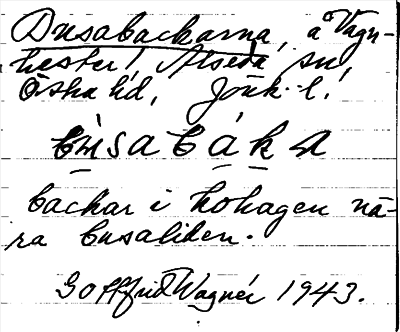 Dusabackarna, å Vagn-
hester, Alseda sn,
Östra hd, Jönk. l.
bùsabáka
backar i kohagen nä-
ra busaliden.
Gottfrid Wagnér 1943.